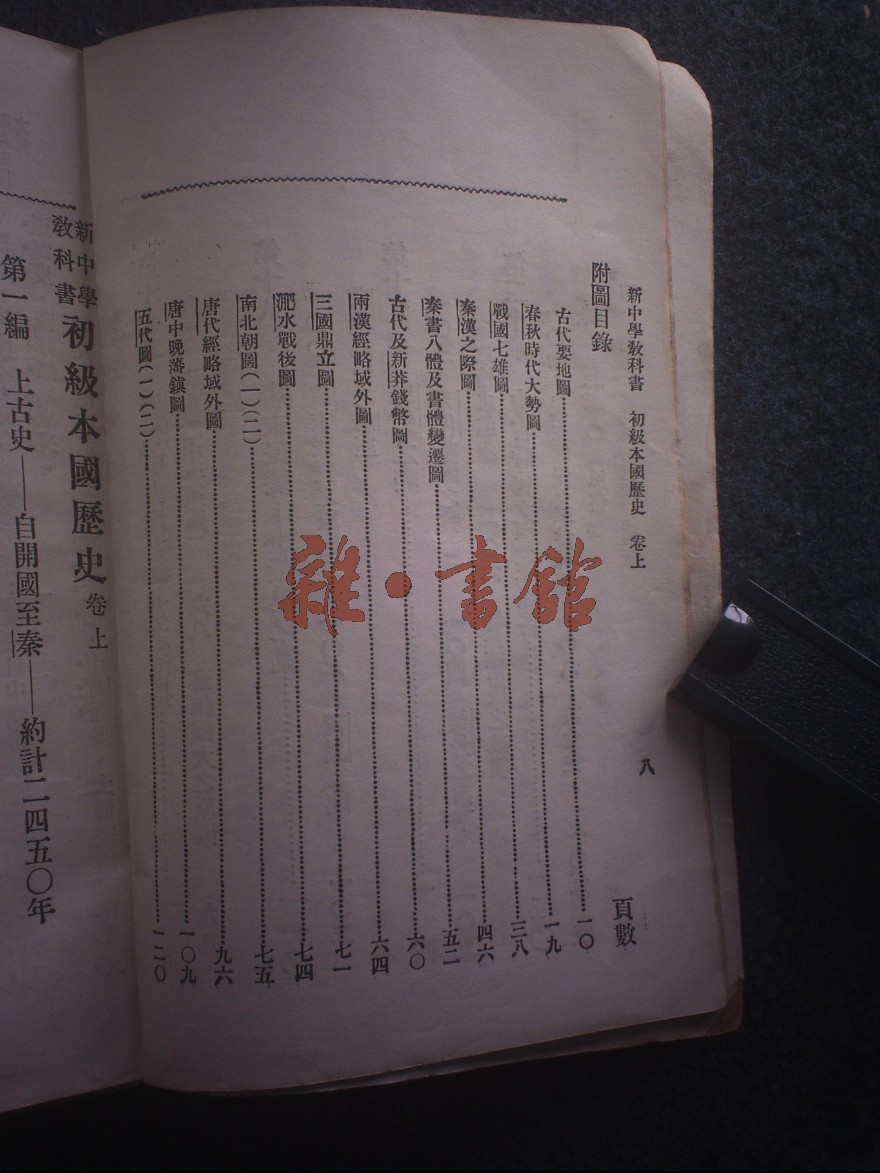 新中學教科書　初級本國歷史　卷上
八
附圖目錄
頁數
古代要地圖……一〇
春秋時代大勢圖……一九
戰國七雄圖……三八
秦漢之際圖……四六
秦書八體及書體變遷圖……五二
古代及新莽錢幣圖……六〇
兩漢經略域外圖……六四
三國鼎立圖……七一
淝水戰後圖……七四
南北朝圖(一)(二)……七五
唐代經略域外圖……九六
唐中晚藩鎮圖……一〇九
五代圖(一)(二)……一二〇
新中學
教科書
初級本國歷史 卷上
第一編　上古史——自開國至秦——約計二四五〇年
雜·書館